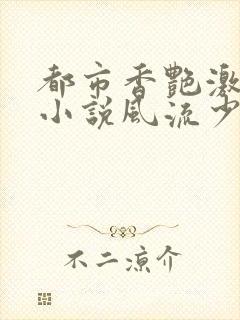 都市香艷激
小説風流少
不二涼介